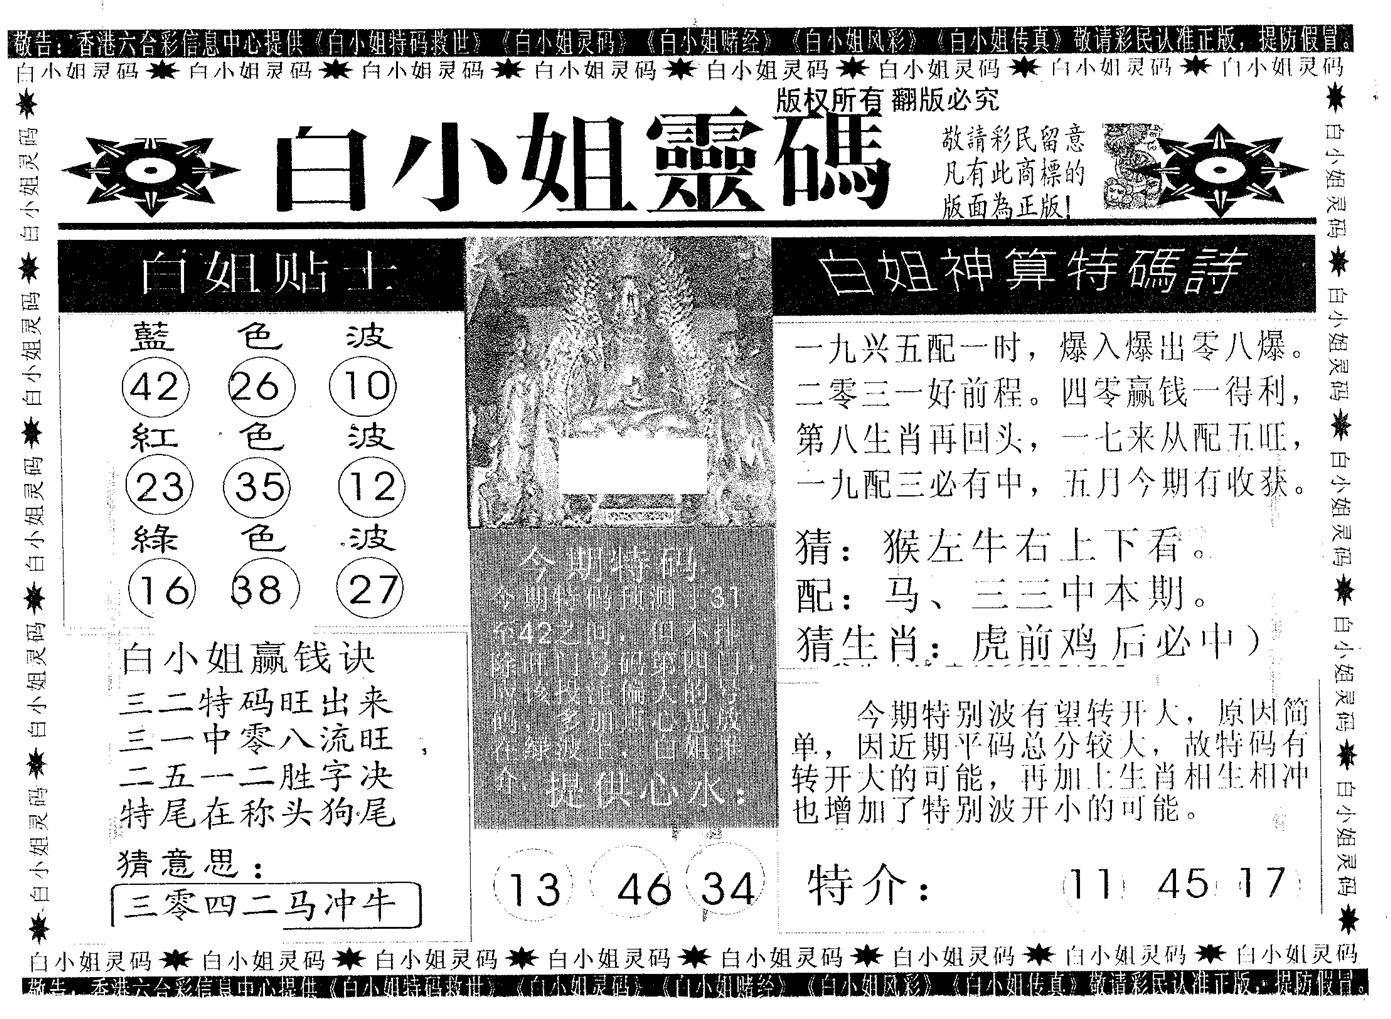 敬告：香港六合彩信息中心提供《白小姐特码救世》《白小姐灵码》《白小姐赌经》《白小姐风彩》《白小姐传真》敬请彩民认准正版，提防假冒。
白小姐灵码 白小姐灵码 白小姐灵码 白小姐灵码 白小姐灵码 白小姐灵码 白小姐灵码 白小姐灵码
版权所有 翻版必究
白小姐靈碼
敬請彩民留意
凡有此商標的
版面為正版！
白小姐灵码 白小姐灵码 白小姐灵码 白小姐灵码 白小姐灵码
白小姐灵码 白小姐灵码 白小姐灵码 白小姐灵码 白小姐灵码
白姐贴士
藍色波
42 26 10
紅色波
23 35 12
綠色波
16 38 27
白小姐赢钱诀
三二特码旺出来
三一中零八流旺
二五一二胜字决
特尾在称头狗尾
猜意思：
三零四二马冲牛
今期特码
今期特码预测于31
至42之间，但不排
除旺门号码第四门，
应该投注偏大的号
码，多加点心思放
在绿波上，白姐推
介，提供心水：
13 46 34
白姐神算特碼詩
一九兴五配一时，爆入爆出零八爆。
二零三一好前程。四零赢钱一得利，
第八生肖再回头，一七来从配五旺，
一九配三必有中，五月今期有收获。
猜：猴左牛右上下看。
配：马、三三中本期。
猜生肖：虎前鸡后必中）
今期特别波有望转开大，原因简
单，因近期平码总分较大，故特码有
转开大的可能，再加上生肖相生相冲
也增加了特别波开小的可能。
特介： 11 45 17
白小姐灵码 白小姐灵码 白小姐灵码 白小姐灵码 白小姐灵码 白小姐灵码 白小姐灵码 白小姐灵码
敬告：香港六合彩信息中心提供《白小姐特码救世》《白小姐灵码》《白小姐赌经》《白小姐风彩》《白小姐传真》敬请彩民认准正版，提防假冒。